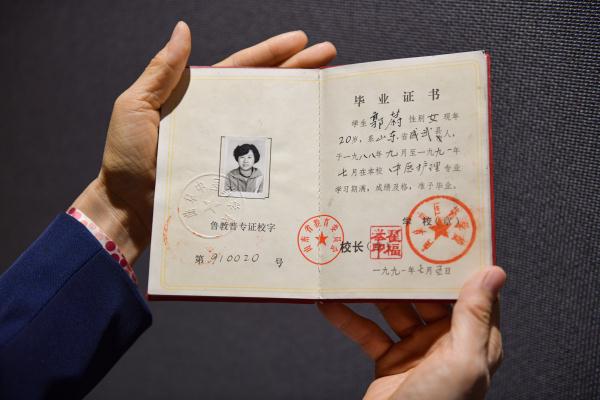 鲁教普专证校字
第 910020 号
毕业证书
学生 郭蔚 性别 女 现年
20岁, 系 山东 省 成武 县人,
于一九八八年九月至一九九一年
七月在本校 中医护理 专业
学习期满, 成绩及格, 准予毕业。
学 校(章)
校长
一九九一年七月 日
山东省教育委员会